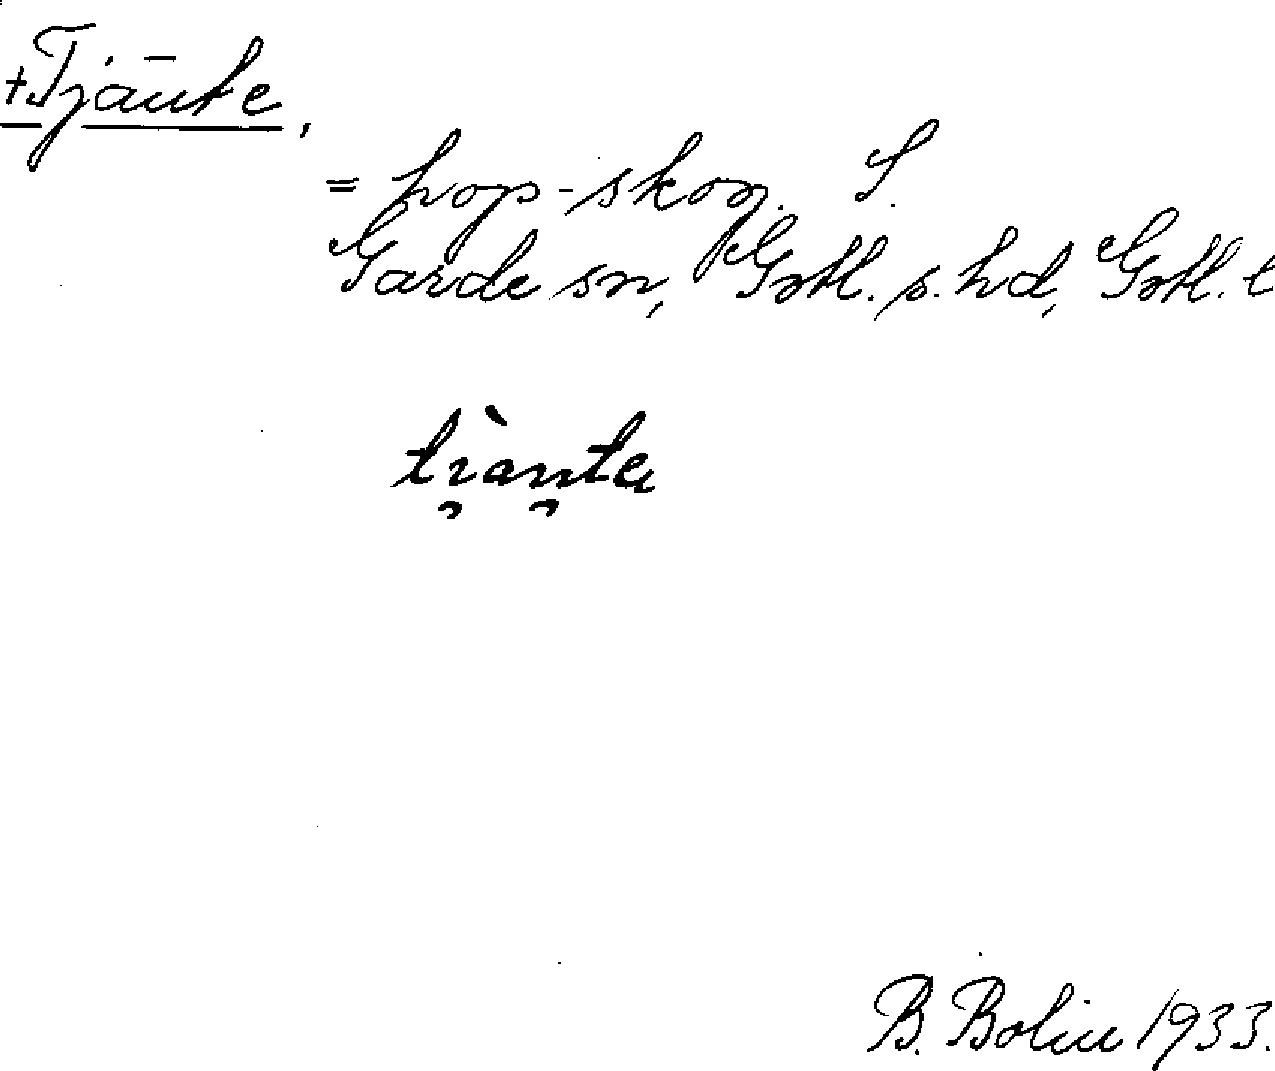 +Tjaute,
= hop-skog. S.
Garde sn, Gotl. s. hd, Gotl. l
B. Bolin 1933.